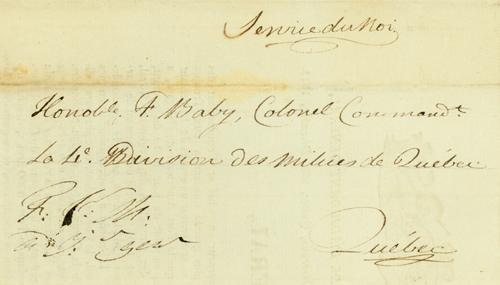 Service du Roi
Honoble. F. Baby, Colonel Commandt.
La 4e. Division des Milices de Québec
F. V. M.
Québec